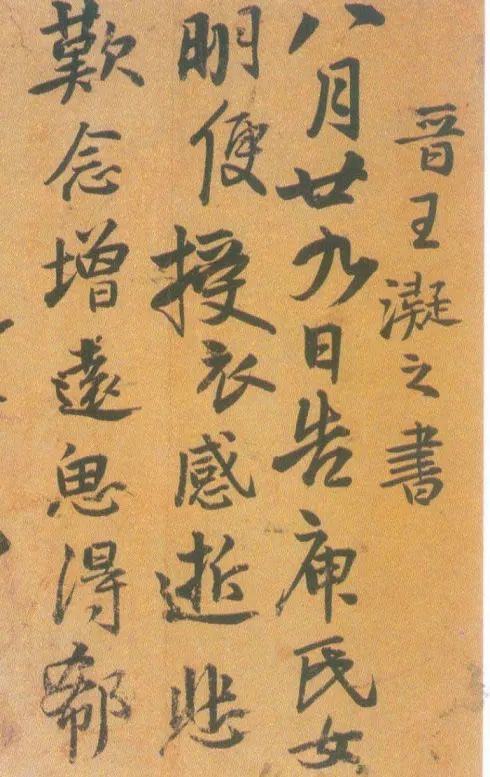 晋王凝之書
八月廿九日告庾氏女
明便授衣感逝悲
歎念增遠思得郗